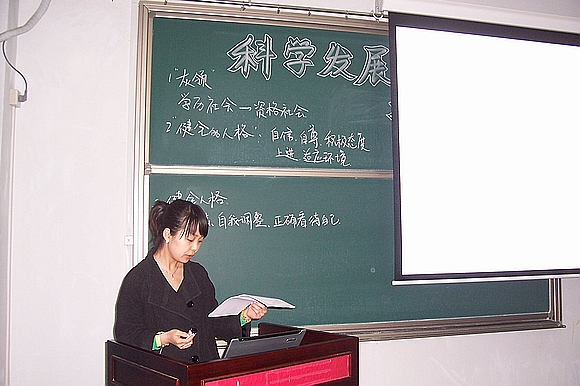 科学发展
1“灰领”
学历社会—资格社会
2“健全的人格”：自信、自尊、积极态度
上进 适应环境
健全人格
自我调整、正确看待自己